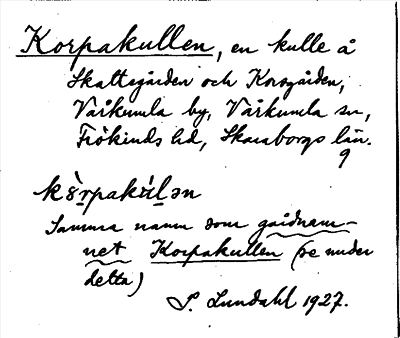 Korpakullen, en kulle å
Skattegården och Korsgården,
Vårkumla by, Vårkumla sn,
Frökinds hd, Skaraborgs län.
9
kòrpakùlən
Samma namn som gårdnam-
net Korpakullen (se under
detta)
S. Lundahl 1927.